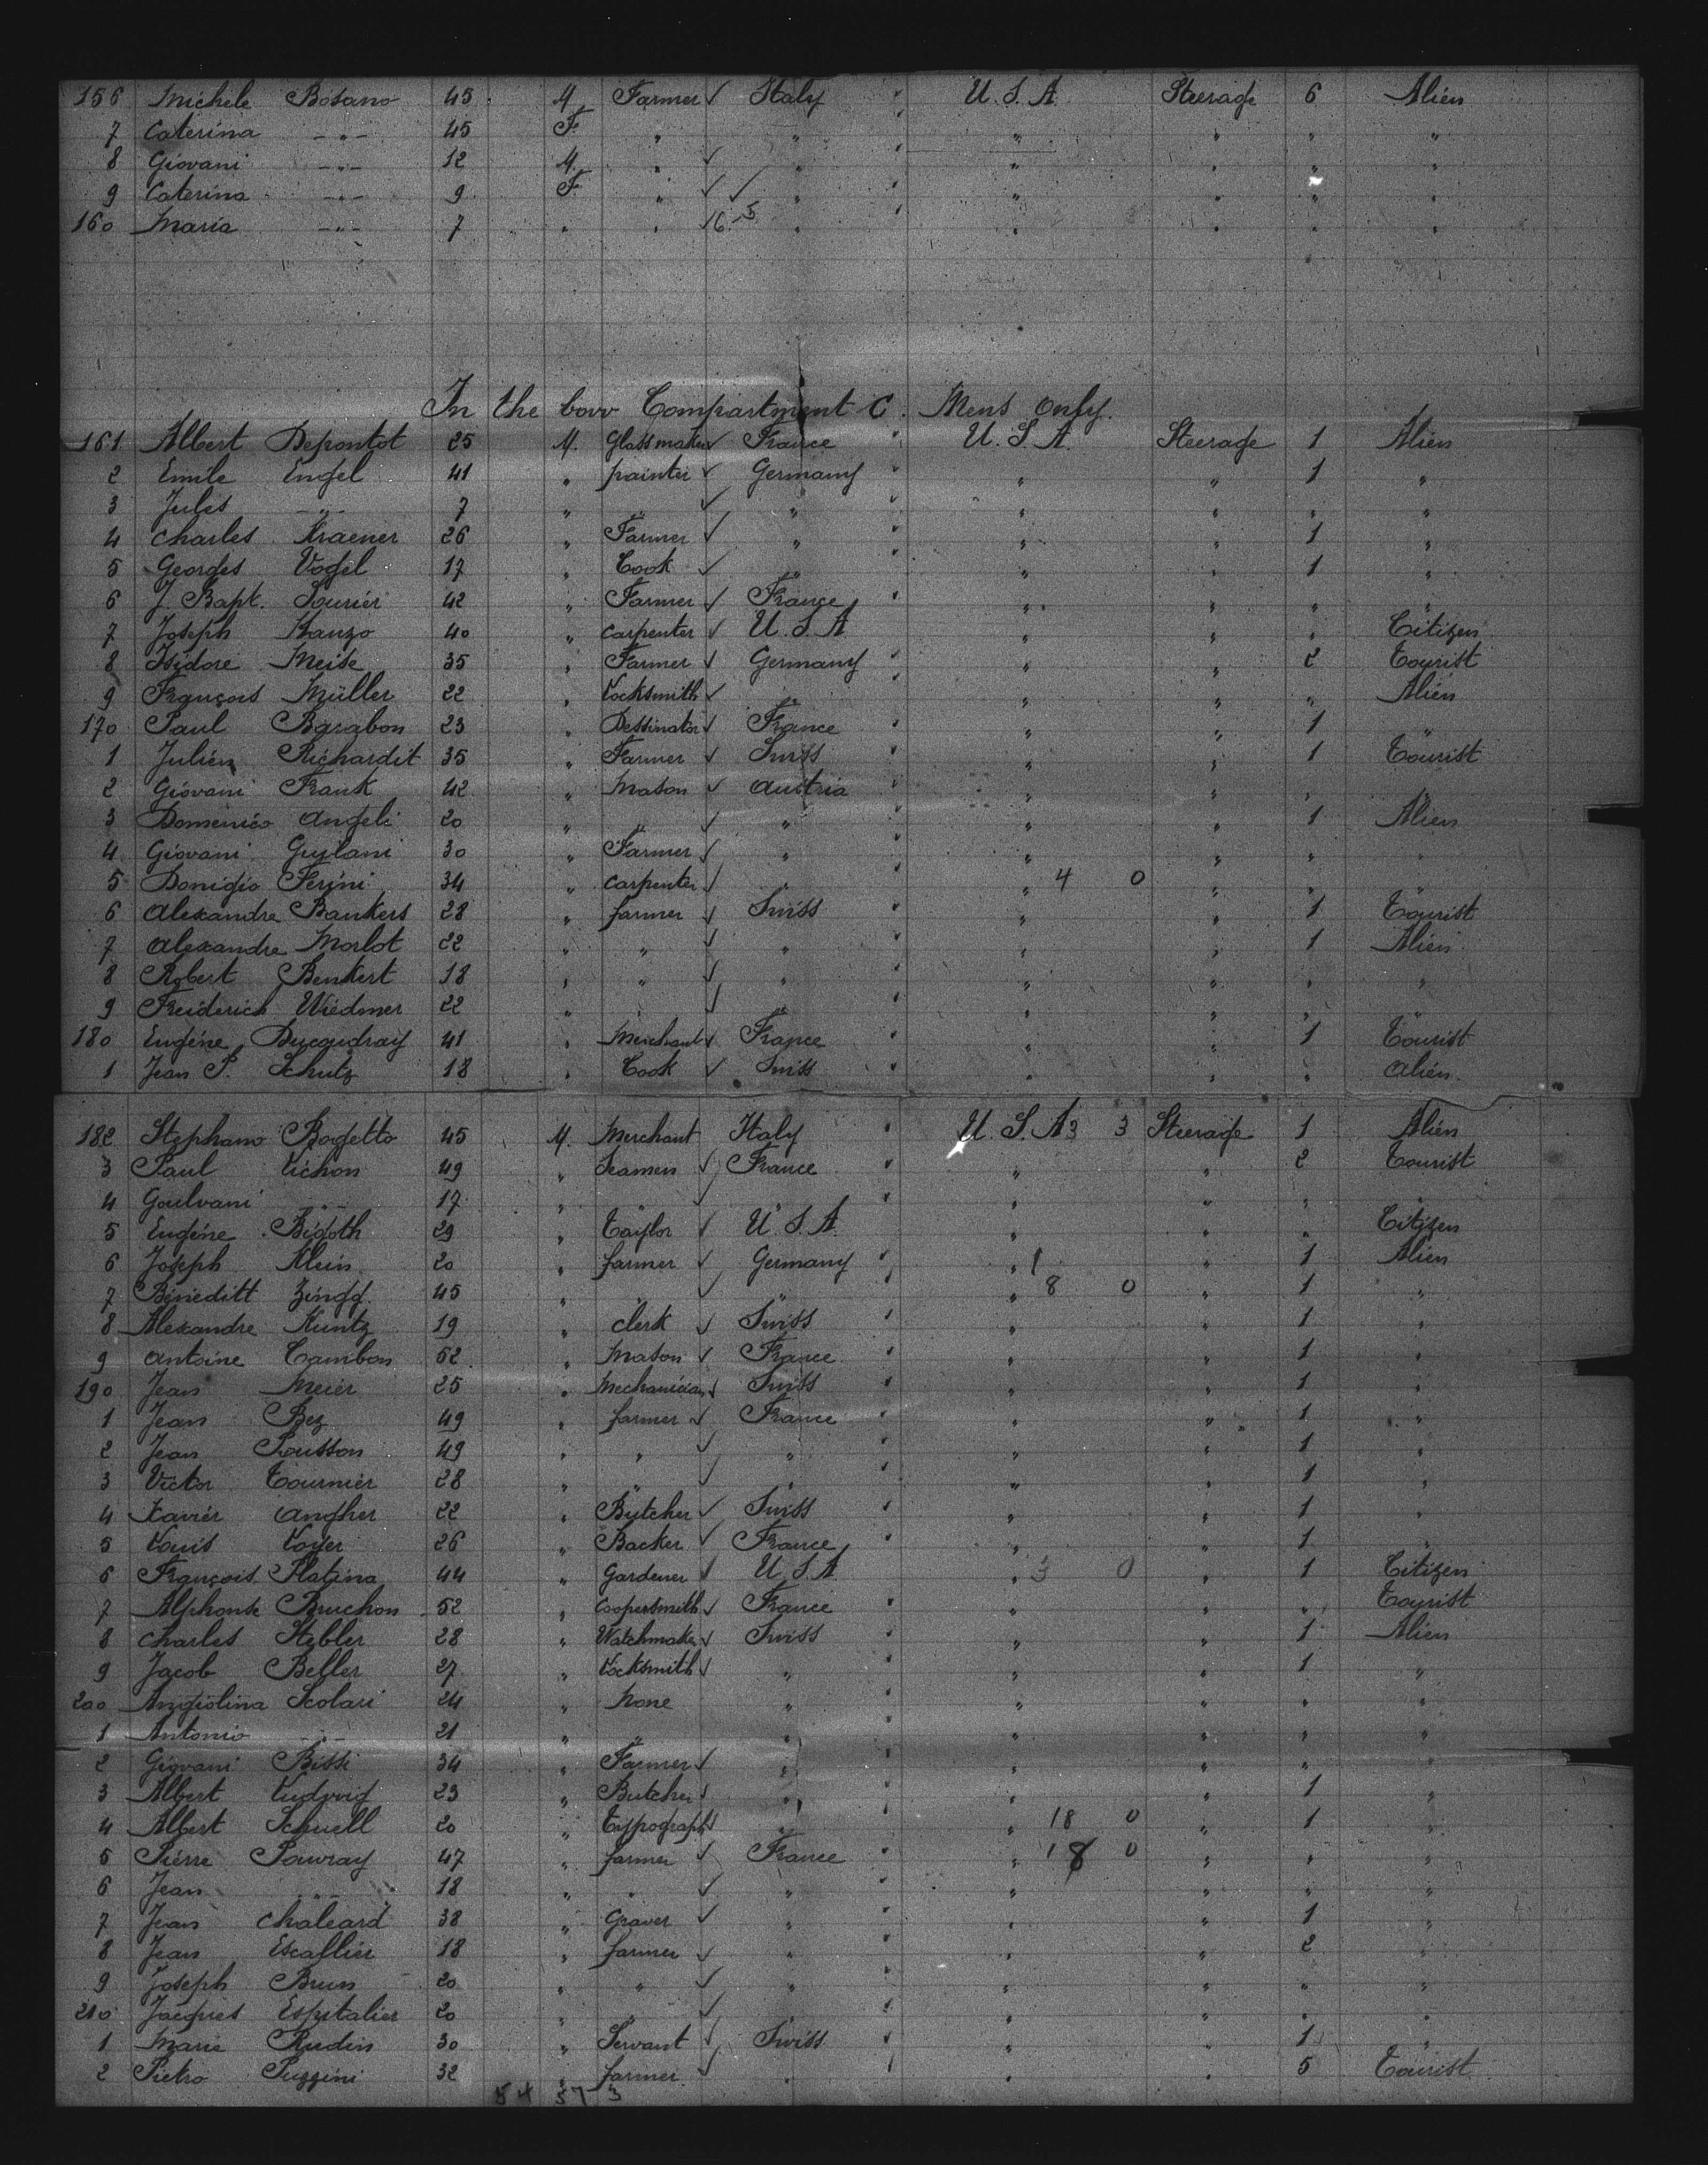 156 Michele Bosano 45 M Farmer ✓ Italy " U. S. A. Steerage 6 Alien
7 Caterina -"- 45 F. " " " " " "
8 Giovani -"- 12 M. " ✓ " " " " "
9 Caterina -"- 9 F. " ✓ ✓ " " " " "
160 Maria -"- 7 " " 165 " " " " "
In the bow Compartment C. Mens only.
161 Albert Depontot 25 M. Glassmaker ✓ France " U. S. A. Steerage 1 Alien
2 Emile Engel 41 " painter ✓ Germany " " " 1 "
3 Jules -"- 7 " " ✓ " " " " " "
4 Charles Kraener 26 " Farmer ✓ " " " " 1 "
5 Georges Vogel 17 " Cook ✓ " " " " 1 "
6 J. Bapt. Sourier 42 " Farmer ✓ France " " " " "
7 Joseph Kanzo 40 " Carpenter ✓ U. S. A " " " Citizen
8 Isidore Meise 35 " Farmer ✓ Germany " " " 2 Tourist
9 François Müller 22 " Locksmith ✓ " " " " " Alien
170 Paul Barabon 23 " Dessinator ✓ France " " " 1 "
1 Julien Richardit 35 " Farmer ✓ Swiss " " " 1 Tourist
2 Giovani Frank 42 " Mason ✓ Austria " " " " "
3 Domenico Angeli 20 " " ✓ " " " " 1 Alien
4 Giovani Guilani 30 " Farmer ✓ " " " " " "
5 Donigio Ferini 34 " Carpenter ✓ " " " 4 0 " " "
6 Alexandre Bankers 28 " farmer ✓ Swiss " " " 1 Tourist
7 Alexandre Morlot 22 " " ✓ " " " " 1 Alien
8 Robert Benkert 18 " " ✓ " " " " " "
9 Freiderich Wiedmer 22 " " ✓ " " " " " "
180 Eugéne Ducoudray 41 " Merchant ✓ France " " " 1 Tourist
1 Jean P. Schutz 18 " Cook ✓ Swiss " " " Alien
182 Stephano Bogetto 45 M. Merchant Italy " U. S. A 3 3 Steerage 1 Alien
3 Paul Lichon 49 " Seamen ✓ France " " " 2 Tourist
4 Goulvani -"- 17 " " ✓ " " " " " "
5 Eugéne Bigoth 29 " Taylor ✓ U. S. A. " " " Citizen
6 Joseph Klein 20 " farmer ✓ Germany " " 1 " 1 Alien
7 Bineditt Zingg 45 " " ✓ " " " 8 0 " 1 "
8 Alexandre Kuntz 19 " clerk ✓ Swiss " " " 1 "
9 Antoine Cambon 52 " Mason ✓ France " " " 1 "
190 Jean Meier 25 " Mechanician ✓ Swiss " " " 1 "
1 Jean Bez 49 " farmer ✓ France " " " 1 "
2 Jean Pousson 49 " " ✓ " " " " 1 "
3 Victor Tournier 28 " " ✓ " " " " 1 "
4 Xavier Angher 22 " Butcher ✓ Swiss " " " 1 "
5 Louis Loyer 26 " Backer ✓ France " " " 1 "
6 François Platina 44 " Gardener ✓ U. S. A " 3 0 " 1 Citizen
7 Alphonse Bruchon 52 " Coopersmith ✓ France " " " " Tourist
8 Charles Stebler 28 " Watchmaker ✓ Swiss " " " 1 Alien
9 Jacob Beller 27 " Locksmith ✓ " " " " 1 "
200 Angiolina Scolari 24 " None " " " " " "
1 Antonio -"- 21 " " " " " " " "
2 Giovani Bissi 34 " Farmer ✓ " " " " " "
3 Albert Ludvvig 23 " Butcher ✓ " " " " 1 "
4 Albert Schnell 20 " Typograph ✓ " " " 18 0 " 1 "
5 Piérre Pouvray 47 " farmer ✓ France " " 18 0 " " "
6 Jean -"- 18 " " ✓ " " " " " "
7 Jean Chaleard 38 " Graver ✓ " " " " 1 "
8 Jean Escallier 18 " farmer ✓ " " " " 2 "
9 Joseph Brun 20 " " ✓ " " " " " "
210 Jacques Espitalier 20 " " ✓ " " " " " "
1 Marie Rudin 30 " Servant ✓ Swiss " " " 1 "
2 Pietro Puzzini 32 " farmer ✓ " " " " 5 Tourist
54 57 3